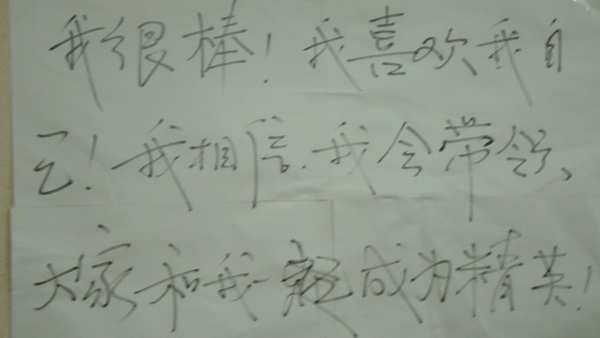 我很棒!我喜欢我自
己!我相信.我会带领、
大家和我一起成为精英!